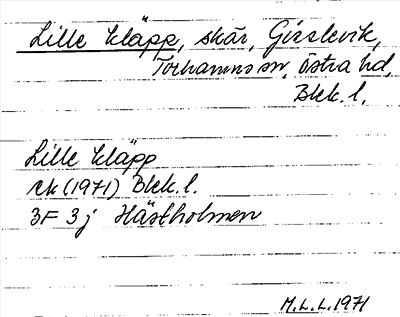 Lille Kläpp, skär, Gislevik,
Torhamns sn, Östra hd,
Blek. l,
Lille Kläpp
ek (1971) Blek. l.
3F 3j Hästholmen
M.L.L. 1971